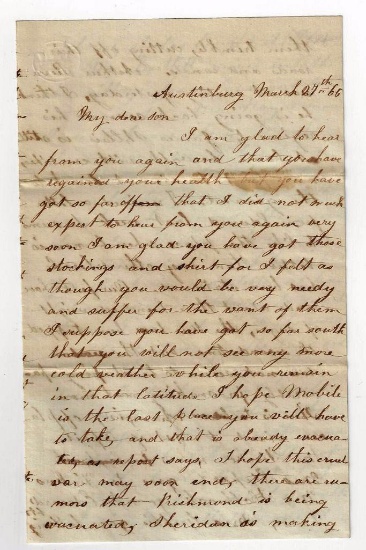 Austinburg March 27th 65
My dear son
I am glad to hear
from you again and that you have
regained your health you have
got so far off that I did not much
expect to hear from you again very
soon I am glad you have got those
stockings and shirt for I felt as
though you would be very needy
and suffer for the want of them
I suppose you have got so far south
that you will not see any more
cold weather while you remain
in that latitude I hope Mobile
is the last place you will have
to take, and that is already evacua-
ted, as report says, I hope this cruel
war may soon end, there are ru-
mors that Richmond is being
evacuated, Sheridan is making